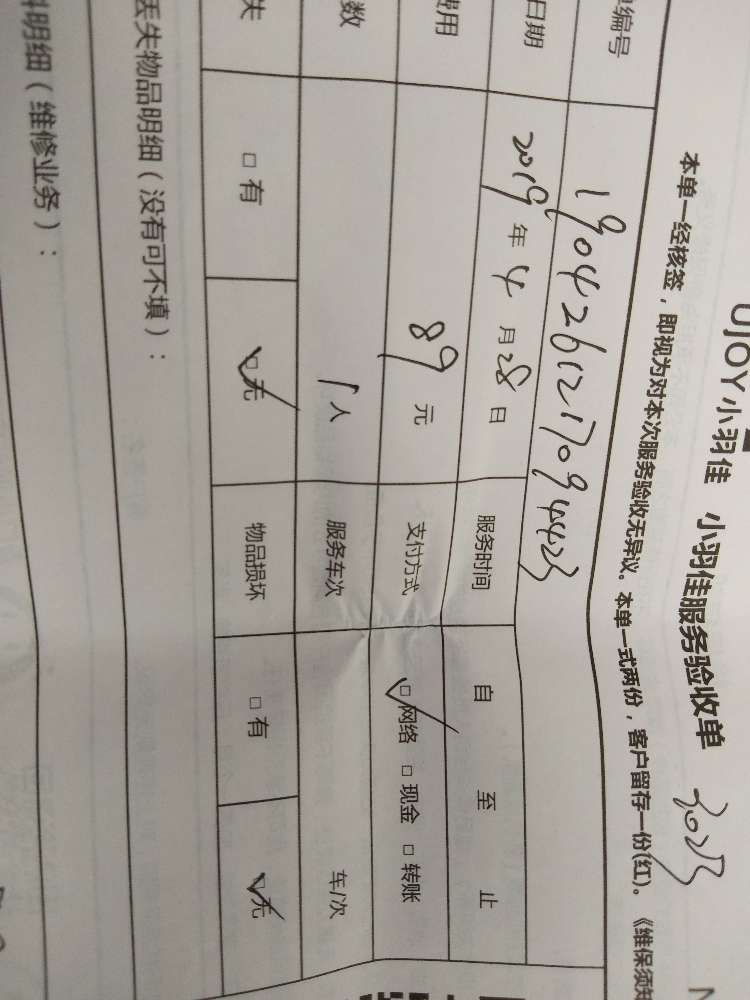 UJOY小羽佳 小羽佳服务验收单 3025
本单一经核签，即视为对本次服务验收无异议。本单一式两份，客户留存一份(红)。《维保须知
编号 1904261217094423
日期 2019年4月28日 服务时间 自 至 止
费用 89元 支付方式 ☑网络 □现金 □转账
数 1人 服务车次 车/次
失 □有 ☑无 物品损坏 □有 ☑无
丢失物品明细（没有可不填）：
明细（维修业务）：